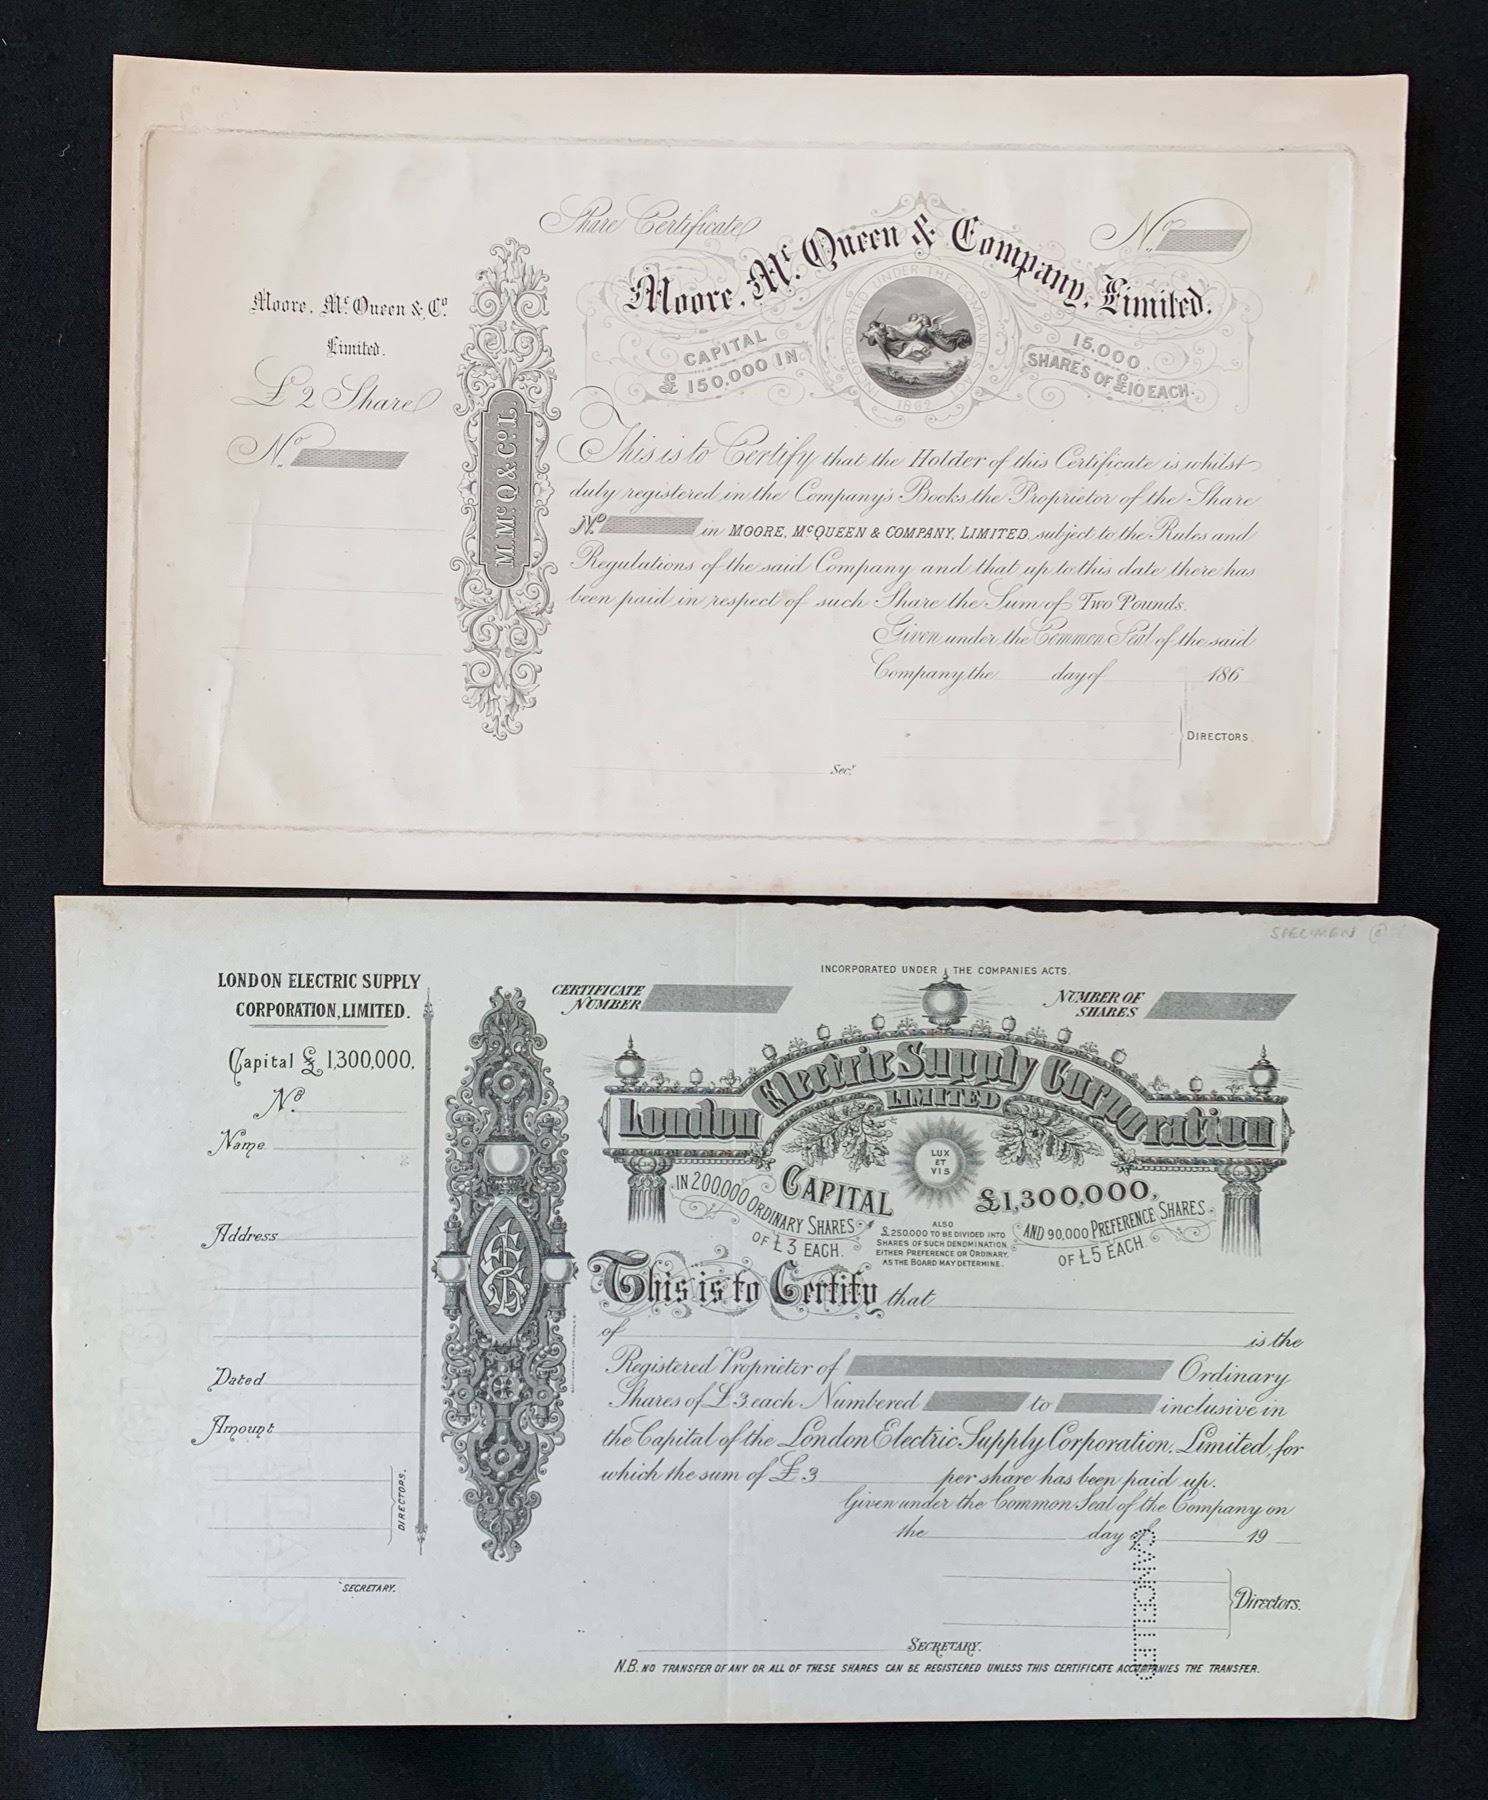 Share Certificate
No.
Moore, Mc. Queen & Company, Limited.
INCORPORATED UNDER THE COMPANIES ACT
1862
CAPITAL
£150,000 IN
15,000
SHARES OF £10 EACH.
Moore, Mc. Queen & Co.
Limited.
£2 Share
No.
M. McQ & Co. L.
This is to Certify that the Holder of this Certificate is whilst
duly registered in the Company's Books the Proprietor of the Share
No. in MOORE, McQUEEN & COMPANY, LIMITED, subject to the Rules and
Regulations of the said Company and that up to this date there has
been paid in respect of such Share the Sum of Two Pounds.
Given under the Common Seal of the said
Company the day of 186
DIRECTORS.
Secy.
SPECIMEN
LONDON ELECTRIC SUPPLY
CORPORATION, LIMITED.
Capital £1,300,000.
No.
Name
Address
Dated
Amount
DIRECTORS.
SECRETARY.
INCORPORATED UNDER THE COMPANIES ACTS.
CERTIFICATE
NUMBER
NUMBER OF
SHARES
London Electric Supply Corporation
LIMITED
LUX
ET
VIS
CAPITAL £1,300,000,
IN 200,000 ORDINARY SHARES
OF £3 EACH.
ALSO
£250,000 TO BE DIVIDED INTO
SHARES OF SUCH DENOMINATION
EITHER PREFERENCE OR ORDINARY,
AS THE BOARD MAY DETERMINE.
AND 90,000 PREFERENCE SHARES
OF £5 EACH
This is to Certify that
of is the
Registered Proprietor of Ordinary
Shares of £3 each Numbered to inclusive in
the Capital of the London Electric Supply Corporation, Limited, for
which the sum of £3 per share has been paid up.
Given under the Common Seal of the Company on
the day of 19
CANCELLED
Directors.
SECRETARY.
N.B. NO TRANSFER OF ANY OR ALL OF THESE SHARES CAN BE REGISTERED UNLESS THIS CERTIFICATE ACCOMPANIES THE TRANSFER.